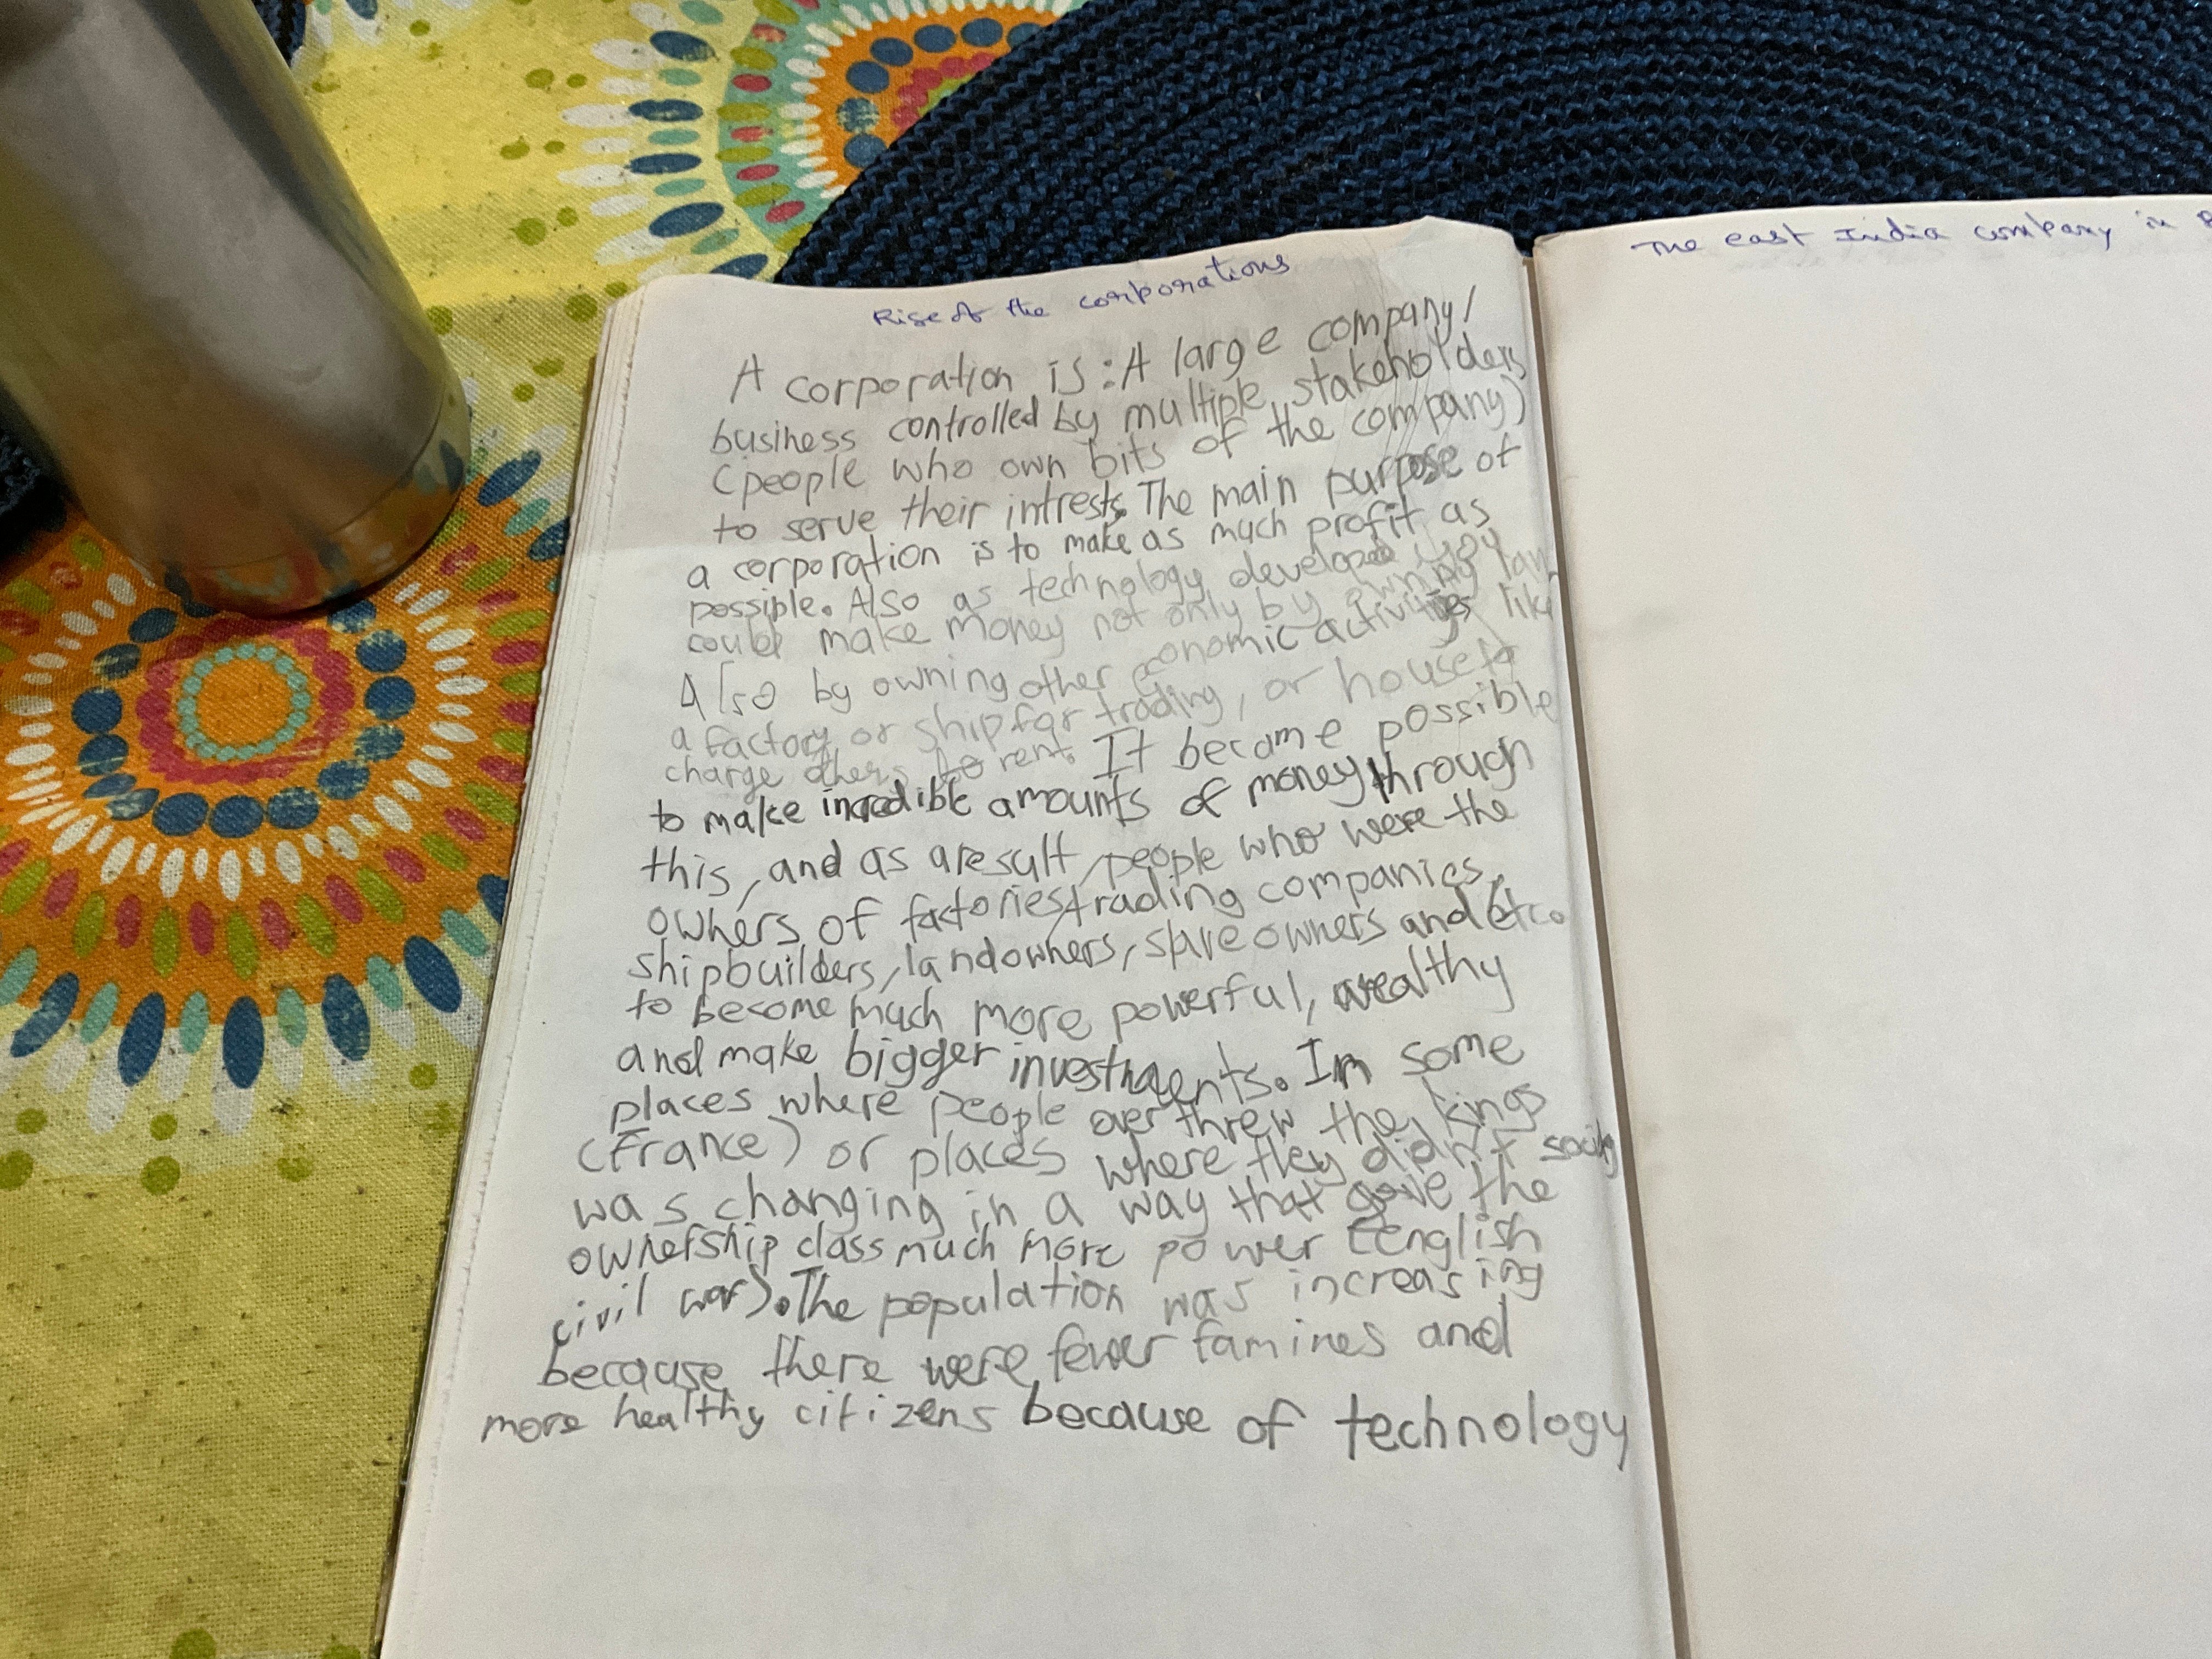 Rise of the corporations
A corporation is: A large company/
business controlled by multiple stakeholders
(people who own bits of the company)
to serve their intrests. The main purpose of
a corporation is to make as much profit as
possible. Also as technology developed you
could make money not only by owning lan
Also by owning other economic activities like
a factory or ship for trading, or house to
charge others to rent. It became possible
to make incredible amounts of money through
this, and as a result, people who were the
owners of factories, trading companies,
shipbuilders, landowners, slave owners and etc.
to become much more powerful, wealthy
and make bigger investments. In some
places where people over threw the kings
(France) or places where they didn't society
was changing in a way that gave the
ownership class much more power (english
civil war). The population was increasing
because there were fewer famines and
more healthy citizens because of technology
The east India company in